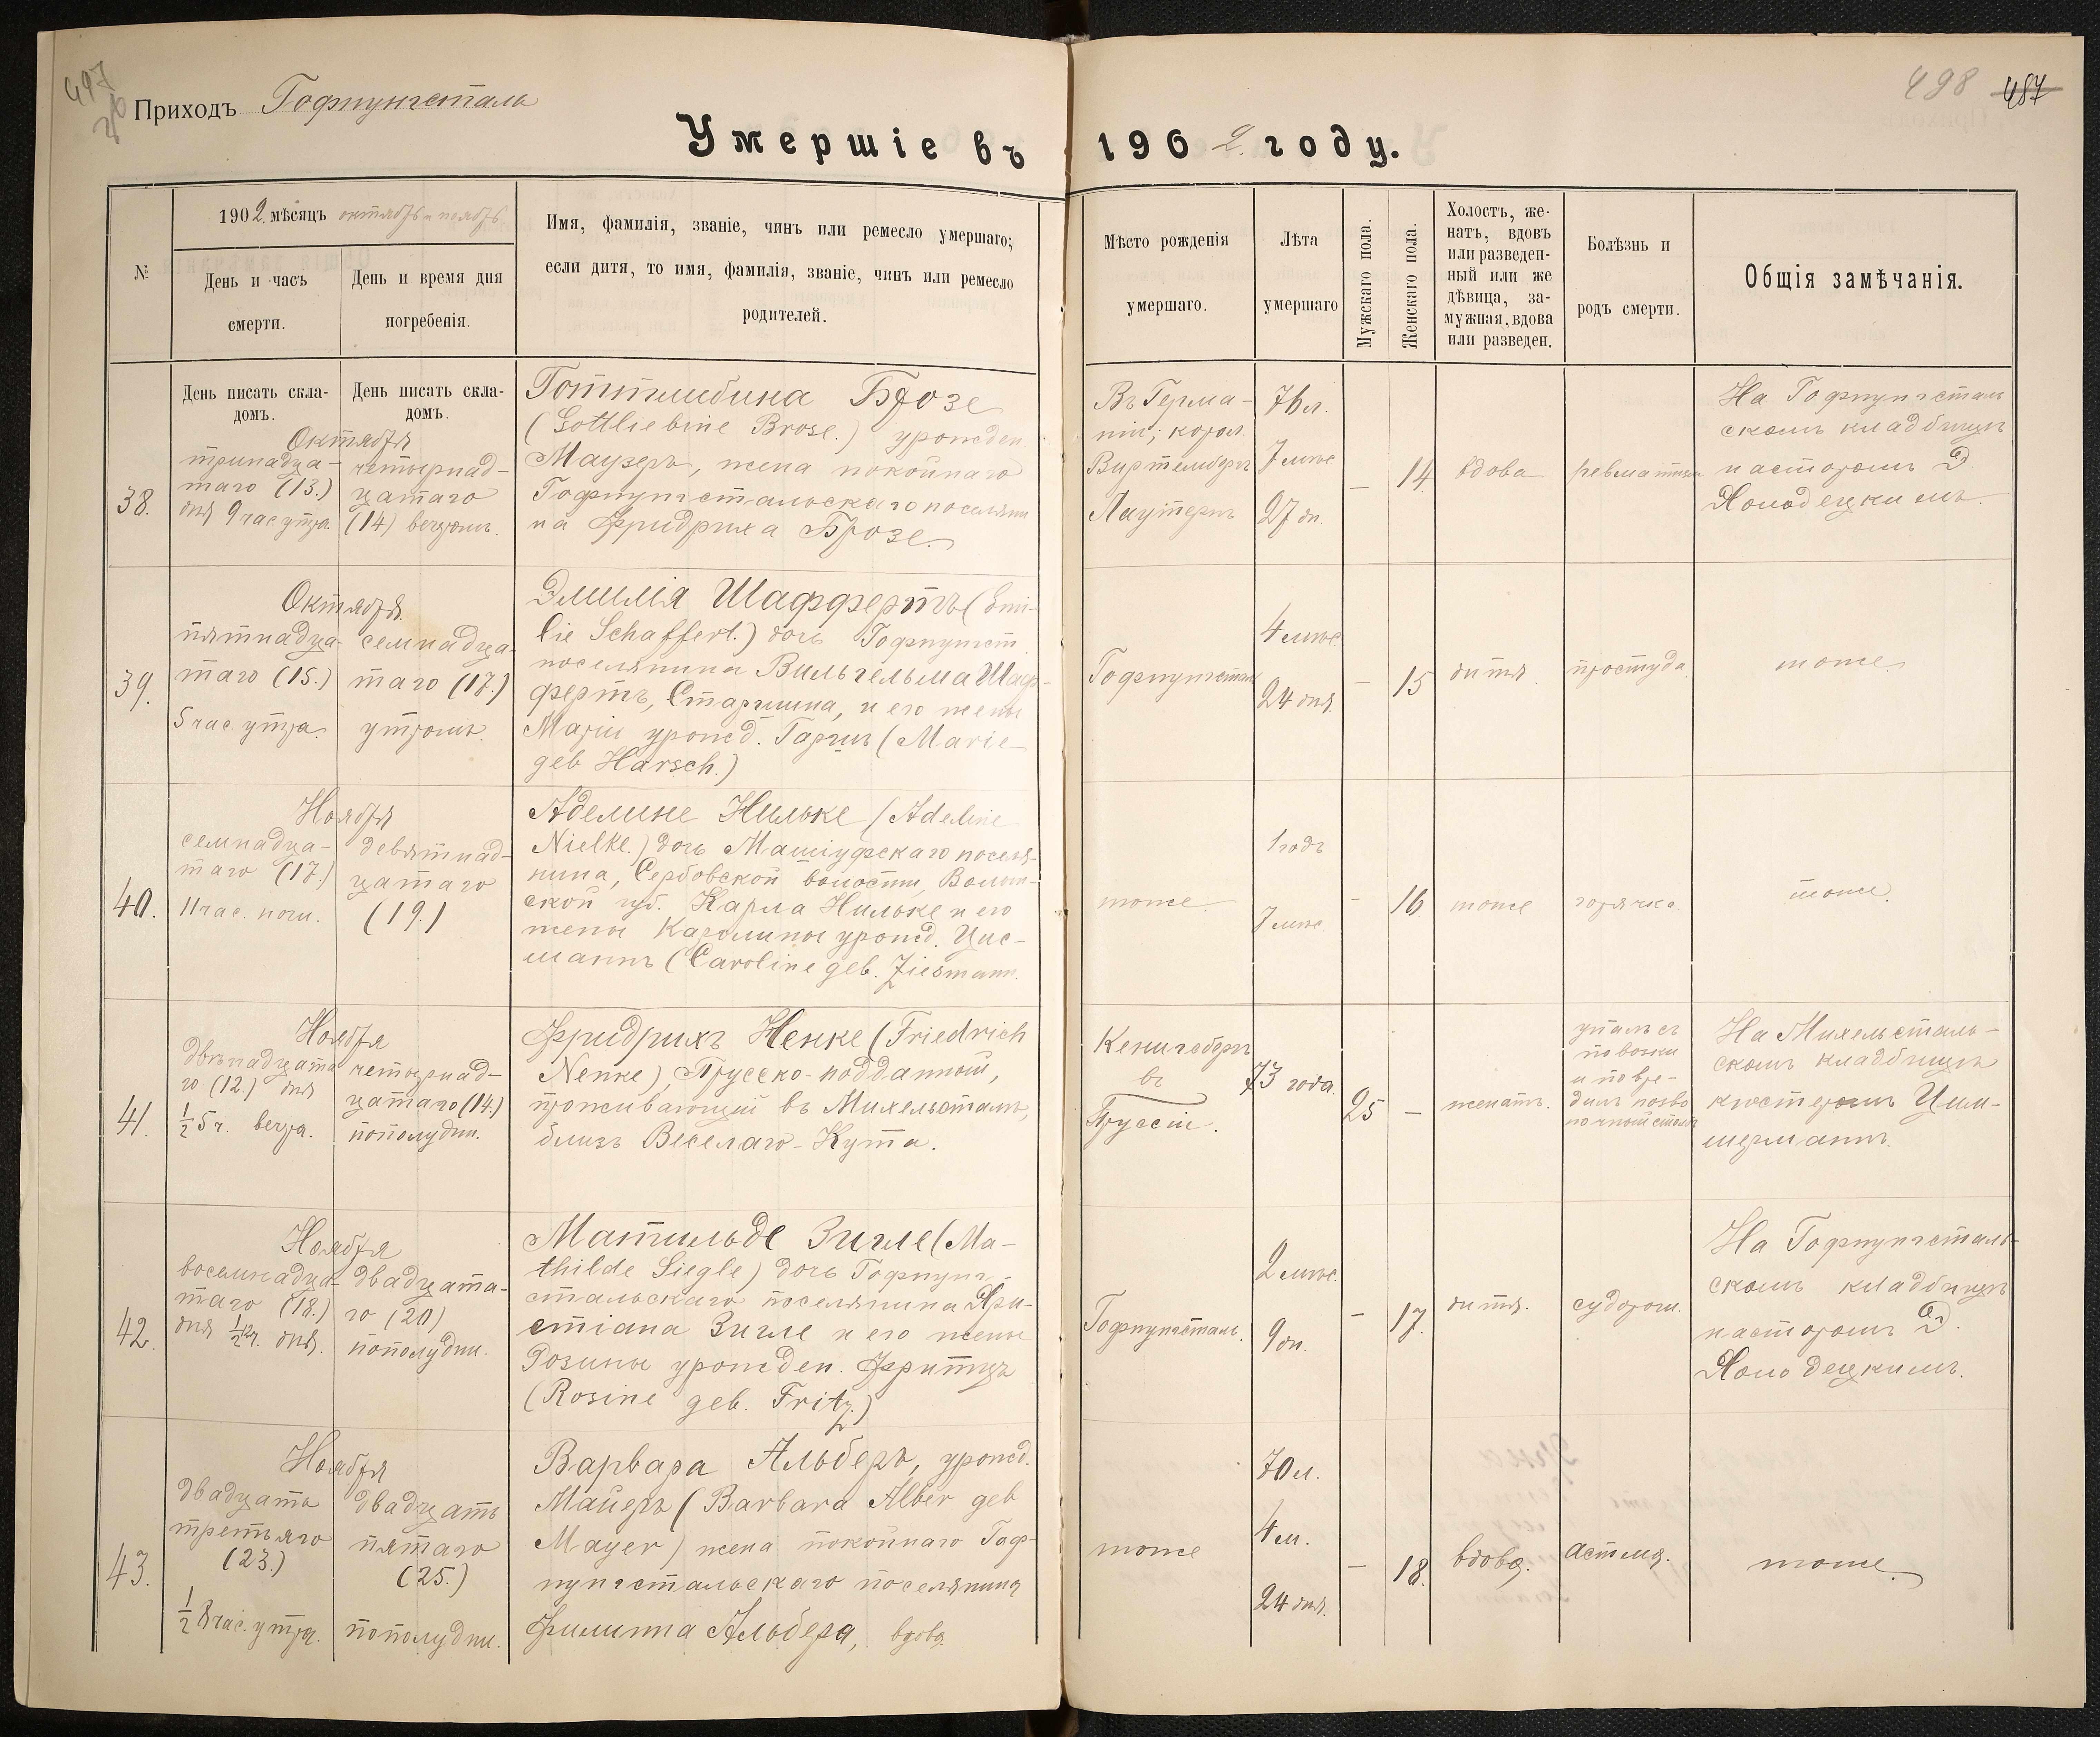 497
Приходъ Гофнунгсталь
498 487
Умершіе въ 1902 году.
№
1902 мѣсяцъ октябрь и ноябрь
День и часъ смерти.
День и время дня погребенія.
Имя, фамилія, званіе, чинъ или ремесло умершаго;
если дитя, то имя, фамилія, званіе, чинъ или ремесло
родителей.
Мѣсто рожденія
умершаго.
Лѣта
умершаго
Мужскаго пола.
Женскаго пола.
Холостъ, же-
натъ, вдовъ
или разведен-
ный или же
дѣвица, за-
мужная, вдова
или разведен.
Болѣзнь и
родъ смерти.
Общія замѣчанія.
День писать скла-
домъ.
День писать скла-
домъ.
38.
Октября
тринадца-
таго (13.)
дня 9 час. утра.
четырнад-
цатаго
(14) вечеромъ.
Готтлибина Брозе
(Gottliebine Brose.) урожден.
Маузеръ, жена покойнаго
Гофнунгстальскаго поселяни
на Фридриха Брозе.
Въ Герма-
ніи; корол.
Виртембергъ
Лаутернъ
76 л.
7 мѣс
27 дн.
—
14.
вдова
ревматизм
На Гофнунгсталь
скомъ кладбищѣ
пасторомъ Д.
Холодецкимъ.
39.
Октября
пятнадца-
таго (15.)
5 час. утра.
семнадца-
таго (17.)
утромъ.
Эмилія Шаффертъ (Emi-
lie Schaffert.) дочь Гофнунгст.
поселянина Вильгельма Шаф-
фертъ, Старшина, и его жены
Маріи урожд. Гаршъ (Marie
geb Harsch.)
Гофнунгсталь
4 мѣс.
24 дня.
—
15
дитя.
простуда.
тоже.
40.
Ноября
семнадца-
таго (17.)
11 час. ночи.
девятнад-
цатаго
(19.)
Аделине Нильке (Adeline
Nielke.) дочь поселя-
нина, Сербовской волости, Волын-
ской губ. Карла Нильке и его
жены Каролины урожд. Цис-
маннъ (Caroline geb. Ziesmann.
тоже
1 годъ
7 мѣс.
—
16
тоже
горячка
тоже.
41.
Ноября
двѣнадцата
го (12.) дня
½ 5 ч. вечера.
четырнад-
цатаго (14.)
пополудни.
Фридрихъ Ненке (Friedrich
Nenke), Прусско-подданный,
проживающій въ Михельсталѣ,
близъ Веселаго-Кута.
Кенигсбергъ
въ
Пруссіи.
73 года.
25
—
женатъ.
упалъ съ
повозки
и повре-
дилъ позво
ночный столбъ
На Михельсталь-
скомъ кладбищѣ
кюстеромъ Цим-
мерманъ.
42.
Ноября
восемнадца-
таго (18.)
дня ½ 12 ч. дня.
двадцата-
го (20)
пополудни.
Матильде Зигле (Ma-
thilde Siegle) дочь Гофнунг-
стальскаго поселянина Хри-
стіана Зигле и его жены
Розины урожден. Фритцъ
(Rosine geb. Fritz.)
Гофнунгсталь.
2 мѣс.
9 дн.
—
17.
дитя.
судороги.
На Гофнунгсталь-
скомъ кладбищѣ
пасторомъ Д.
Холодецкимъ.
43.
Ноября
двадцать
третьяго
(23.)
½ 8 час. утра.
двадцать
пятаго
(25.)
пополудни.
Варвара Альберъ, урожд.
Майеръ (Barbara Alber geb
Mayer) жена покойнаго Гоф-
нунгстальскаго поселянина
Филиппа Альбера, вдова.
тоже
70 л.
4 м.
24 дня.
—
18.
вдова.
астма.
тоже.